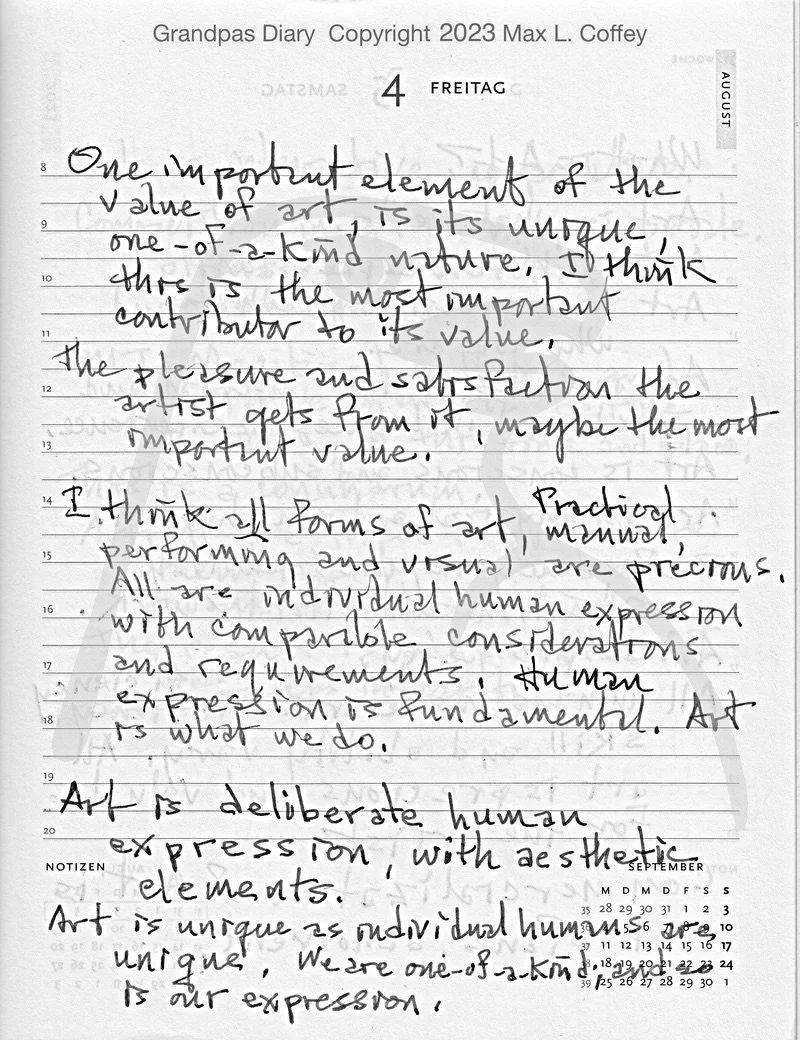 Grandpas Diary Copyright 2023 Max L. Coffey
4 FREITAG
AUGUST
8
One important element of the
value of art, is its unique,
9
one-of-a-kind nature. I think
10
this is the most important
contributor to its value.
11
The pleasure and satisfaction the
12
artist gets from it, maybe the most
13
important value.
14
I think all forms of art, Practical,
manual,
15
performing and visual are precious.
All are individual human expression
16
with comparible considerations
17
and requirements. Human
expression is fundamental. Art
18
is what we do.
19
Art is deliberate human
20
expression, with aesthetic
NOTIZEN
elements.
SEPTEMBER
M D M D F S S
35 28 29 30 31 1 2 3
Art is unique as individual humans are
10
37 11 12 13 14 15 16 17
unique. We are one-of-a-kind, and so
18 19 20 21 22 23 24
39 25 26 27 28 29 30 1
is our expression.